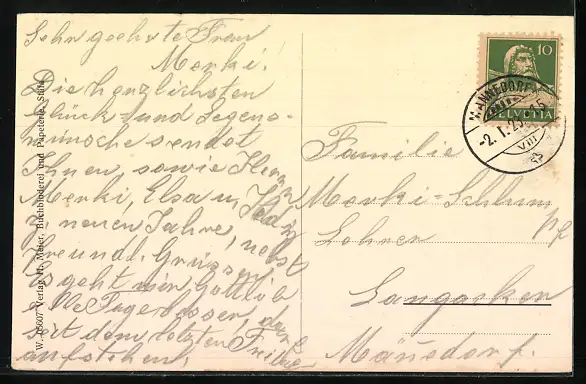 Sehr geehrte Frau
Merki!
Die herzlichsten
Glück- und Segens-
wünsche sendet
Ihnen, sowie Herrn
Merki, Elsa u.
z. neuen Jahre, nebst
freundl. Grüssen,
Es geht mir Gottlob
alle Tage besser,
seit dem letzten Freitag
aufstehen,
W. 15607 Verlag Maier, Buchbinderei und Papeterie, Stäfa
10
HELVETIA
MÄNNEDORF
-2.I.25
VIII
Familie
Merki-
Lohner
Langacker
Männedorf.